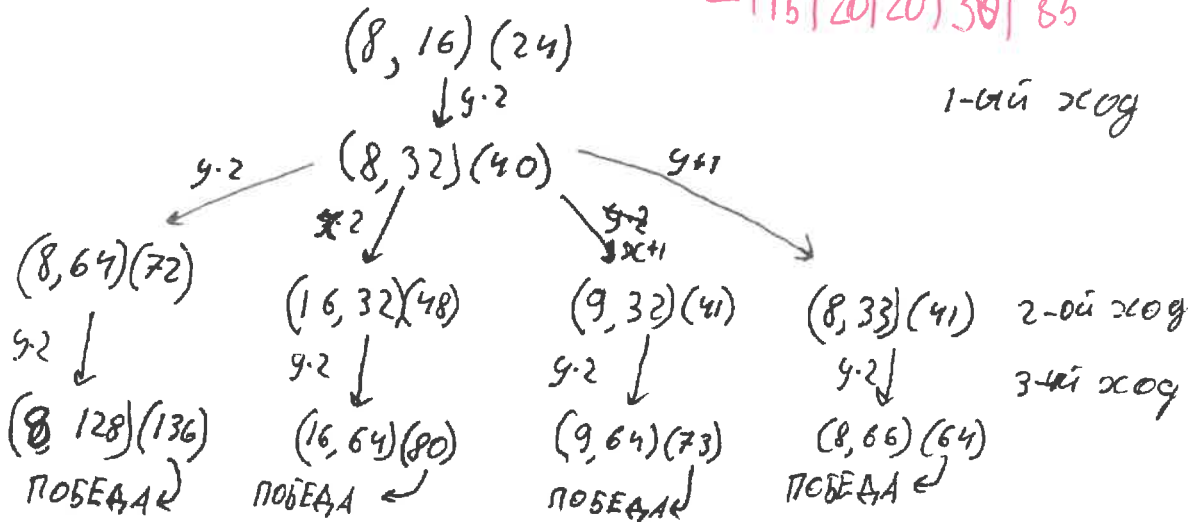 115|20|20|30|85
(8, 16) (24)
y·2
1-ый ход
(8, 32) (40)
y·2 x·2 x+1 y+1
(8, 64) (72) (16, 32) (48) (9, 32) (41) (8, 33) (41) 2-ой ход
y·2 y·2 y·2 y·2 3-ий ход
(8 128) (136) (16, 64) (80) (9, 64) (73) (8, 66) (64)
ПОБЕДА ПОБЕДА ПОБЕДА ПОБЕДА